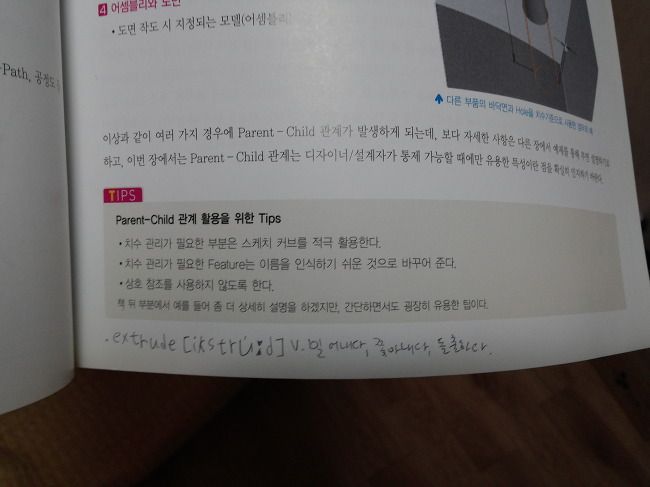 4 어셈블리와 도면
• 도면 작도 시 지정되는 모델(어셈블리)
-Path, 공정도
다른 부품의 바닥면과 Hole을 치수기준으로 사용한
이상과 같이 여러 가지 경우에 Parent-Child 관계가 발생하게 되는데, 보다 자세한 사항은 다른 장에서 예제를 통해
하고, 이번 장에서는 Parent-Child 관계는 디자이너/설계자가 통제 가능할 때에만 유용한 특성이란 점을 확실히 인지하기 바란다.
TIPS
Parent-Child 관계 활용을 위한 Tips
• 치수 관리가 필요한 부분은 스케치 커브를 적극 활용한다.
• 치수 관리가 필요한 Feature는 이름을 인식하기 쉬운 것으로 바꾸어 준다.
• 상호 참조를 사용하지 않도록 한다.
책 뒤 부분에서 예를 들어 좀 더 상세히 설명을 하겠지만, 간단하면서도 굉장히 유용한 팁이다.
. extrude [ikstrúːd] v. 밀어내다, 쫓아내다, 돌출하다.